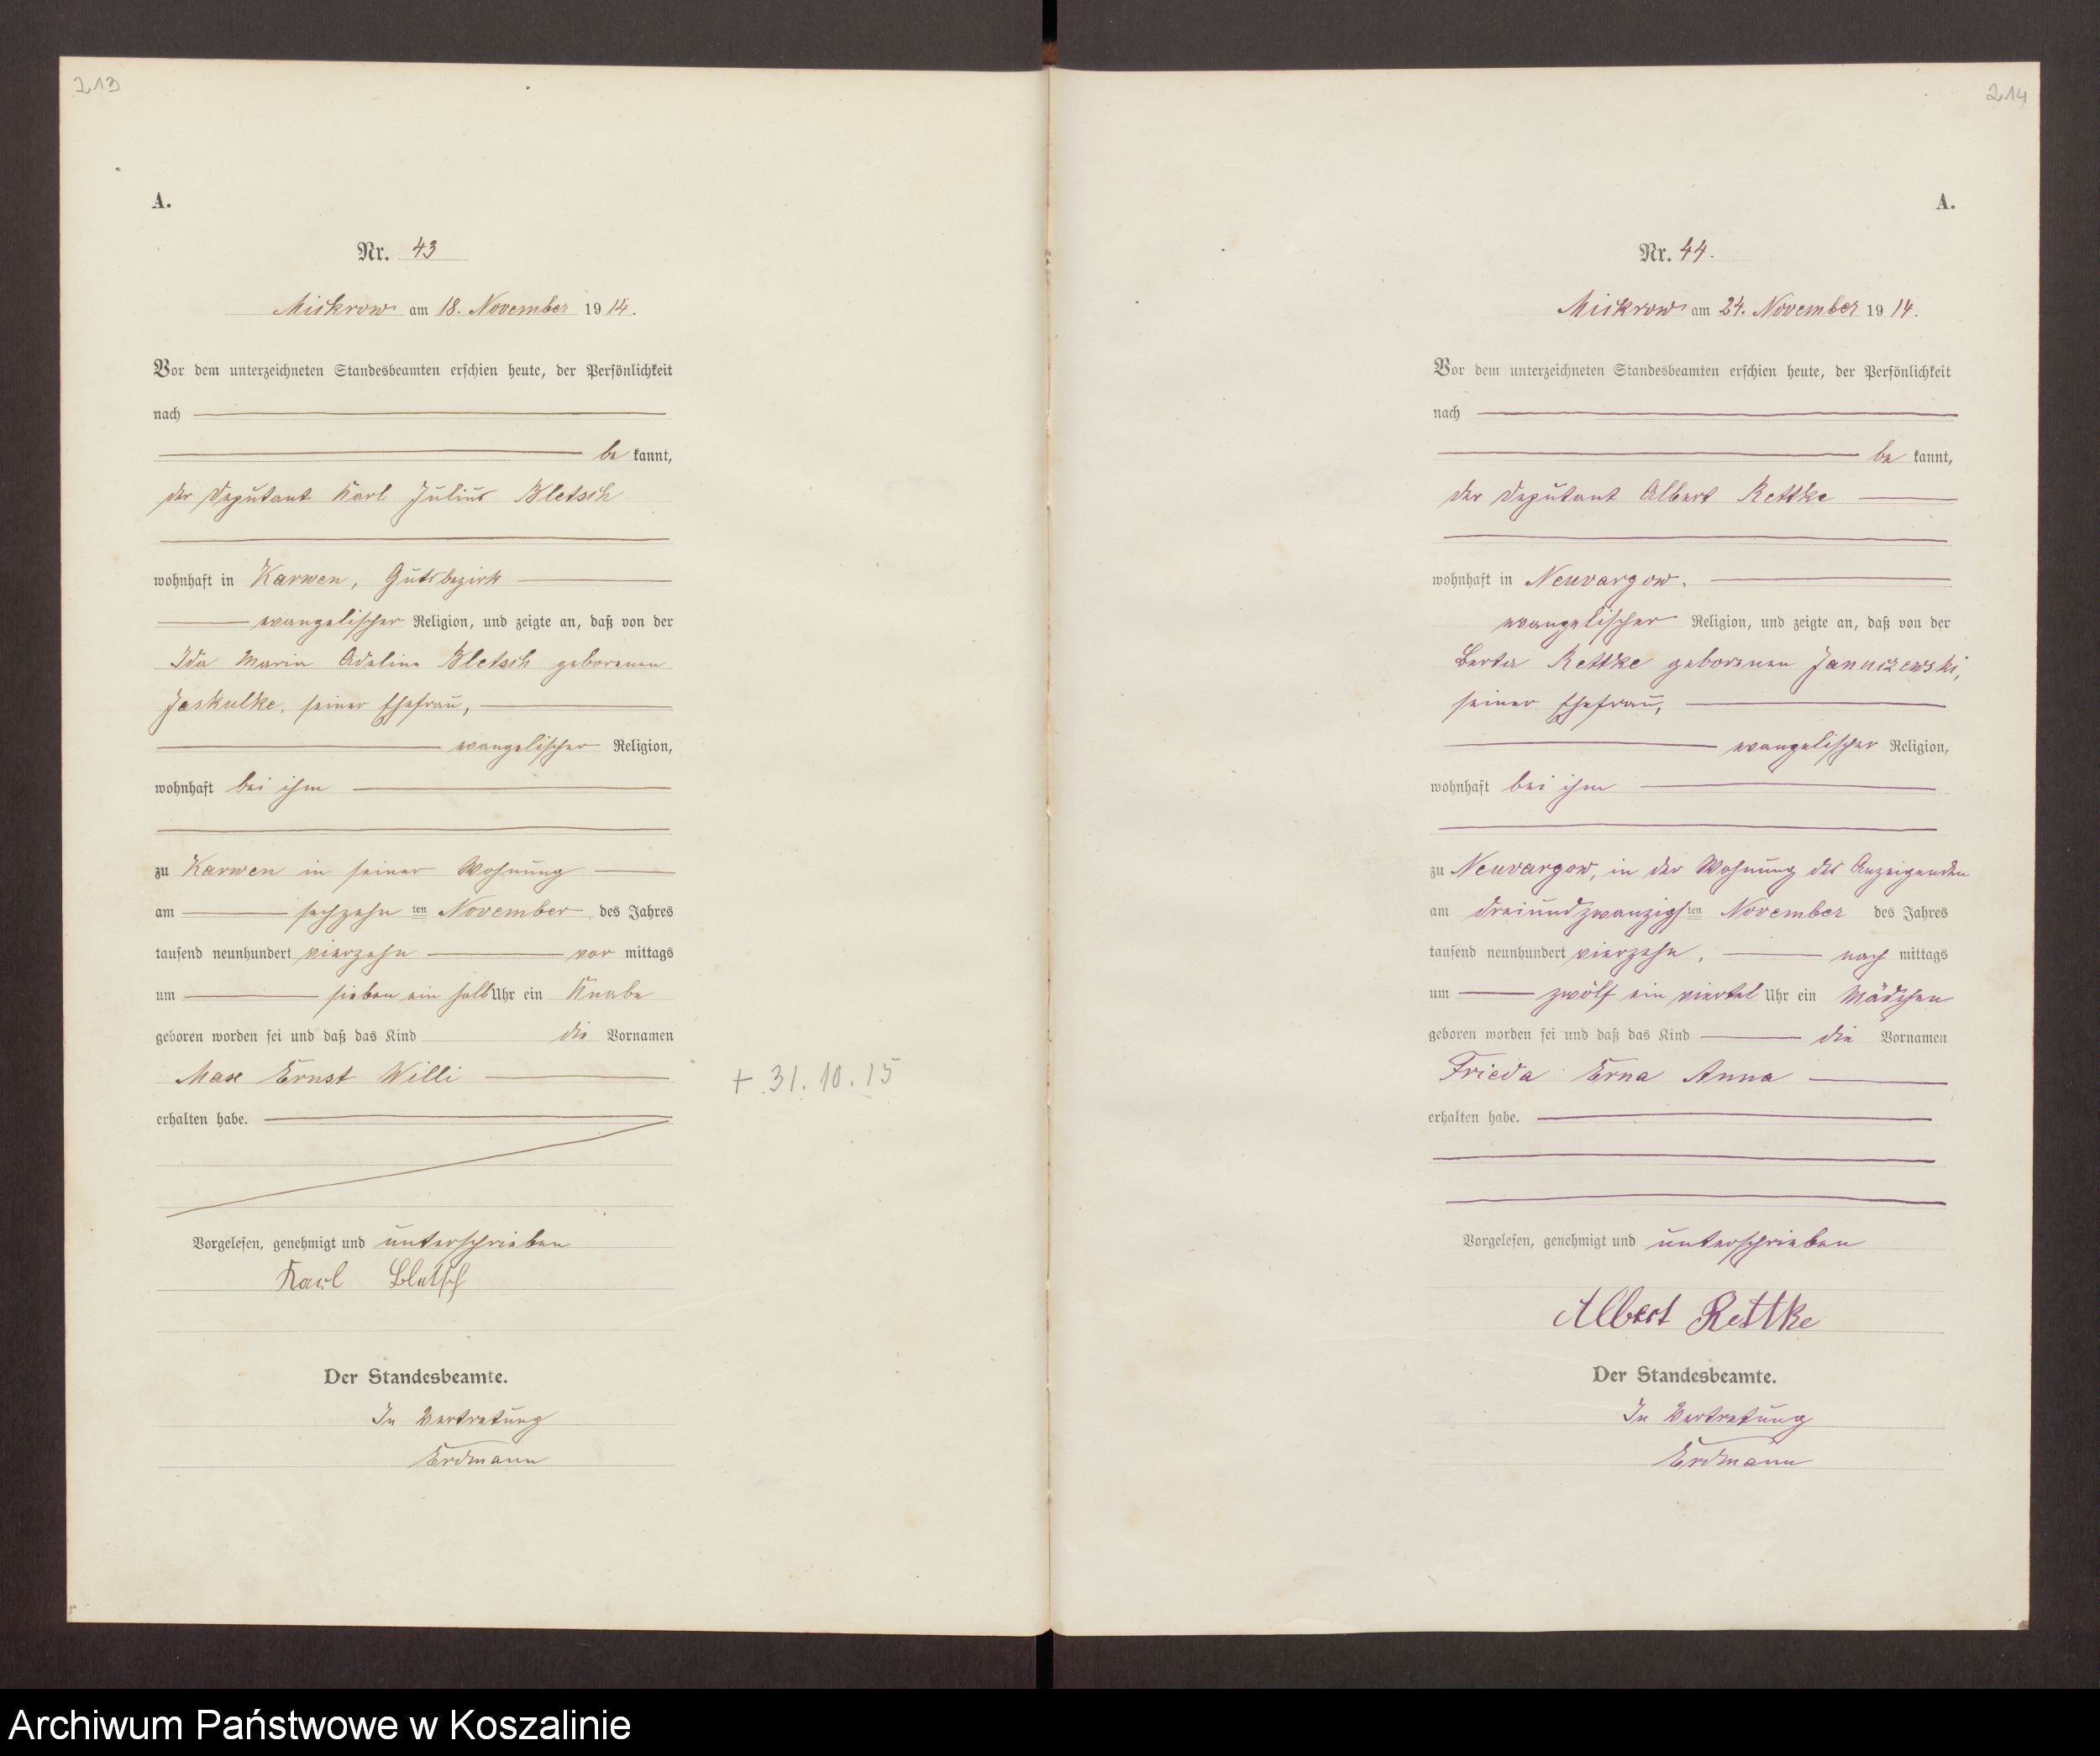 213
A.
Nr. 43
Mickrow am 18. November 1914.
Vor dem unterzeichneten Standesbeamten erschien heute, der Persönlichkeit
nach
be kannt,
der Deputant Karl Julius Bletsch
wohnhaft in Karwen, Gutsbezirk
evangelischer Religion, und zeigte an, daß von der
Ida Maria Adeline Bletsch geborenen
Jaskulke, seiner Ehefrau,
evangelischer Religion,
wohnhaft bei ihm
zu Karwen in seiner Wohnung
am sechzehn ten November des Jahres
tausend neunhundert vierzehn vor mittags
um sieben ein halb Uhr ein Knabe
geboren worden sei und daß das Kind die Vornamen
Max Ernst Willi
+ 31.10.15
erhalten habe.
Vorgelesen, genehmigt und unterschrieben
Karl Bletsch
Der Standesbeamte.
In Vertretung
Erdmann
214
A.
Nr. 44.
Mickrow am 24. November 1914.
Vor dem unterzeichneten Standesbeamten erschien heute, der Persönlichkeit
nach
be kannt,
der Deputant Albert Rettke
wohnhaft in Neuvargow.
evangelischer Religion, und zeigte an, daß von der
Berta Rettke geborenen Januczewski,
seiner Ehefrau,
evangelischer Religion,
wohnhaft bei ihm
zu Neuvargow, in der Wohnung des Anzeigenden
am dreiundzwanzigs ten November des Jahres
tausend neunhundert vierzehn, nach mittags
um zwölf ein viertel Uhr ein Mädchen
geboren worden sei und daß das Kind die Vornamen
Frieda Erna Anna
erhalten habe.
Vorgelesen, genehmigt und unterschrieben
Albert Rettke
Der Standesbeamte.
In Vertretung
Erdmann
Archiwum Państwowe w Koszalinie